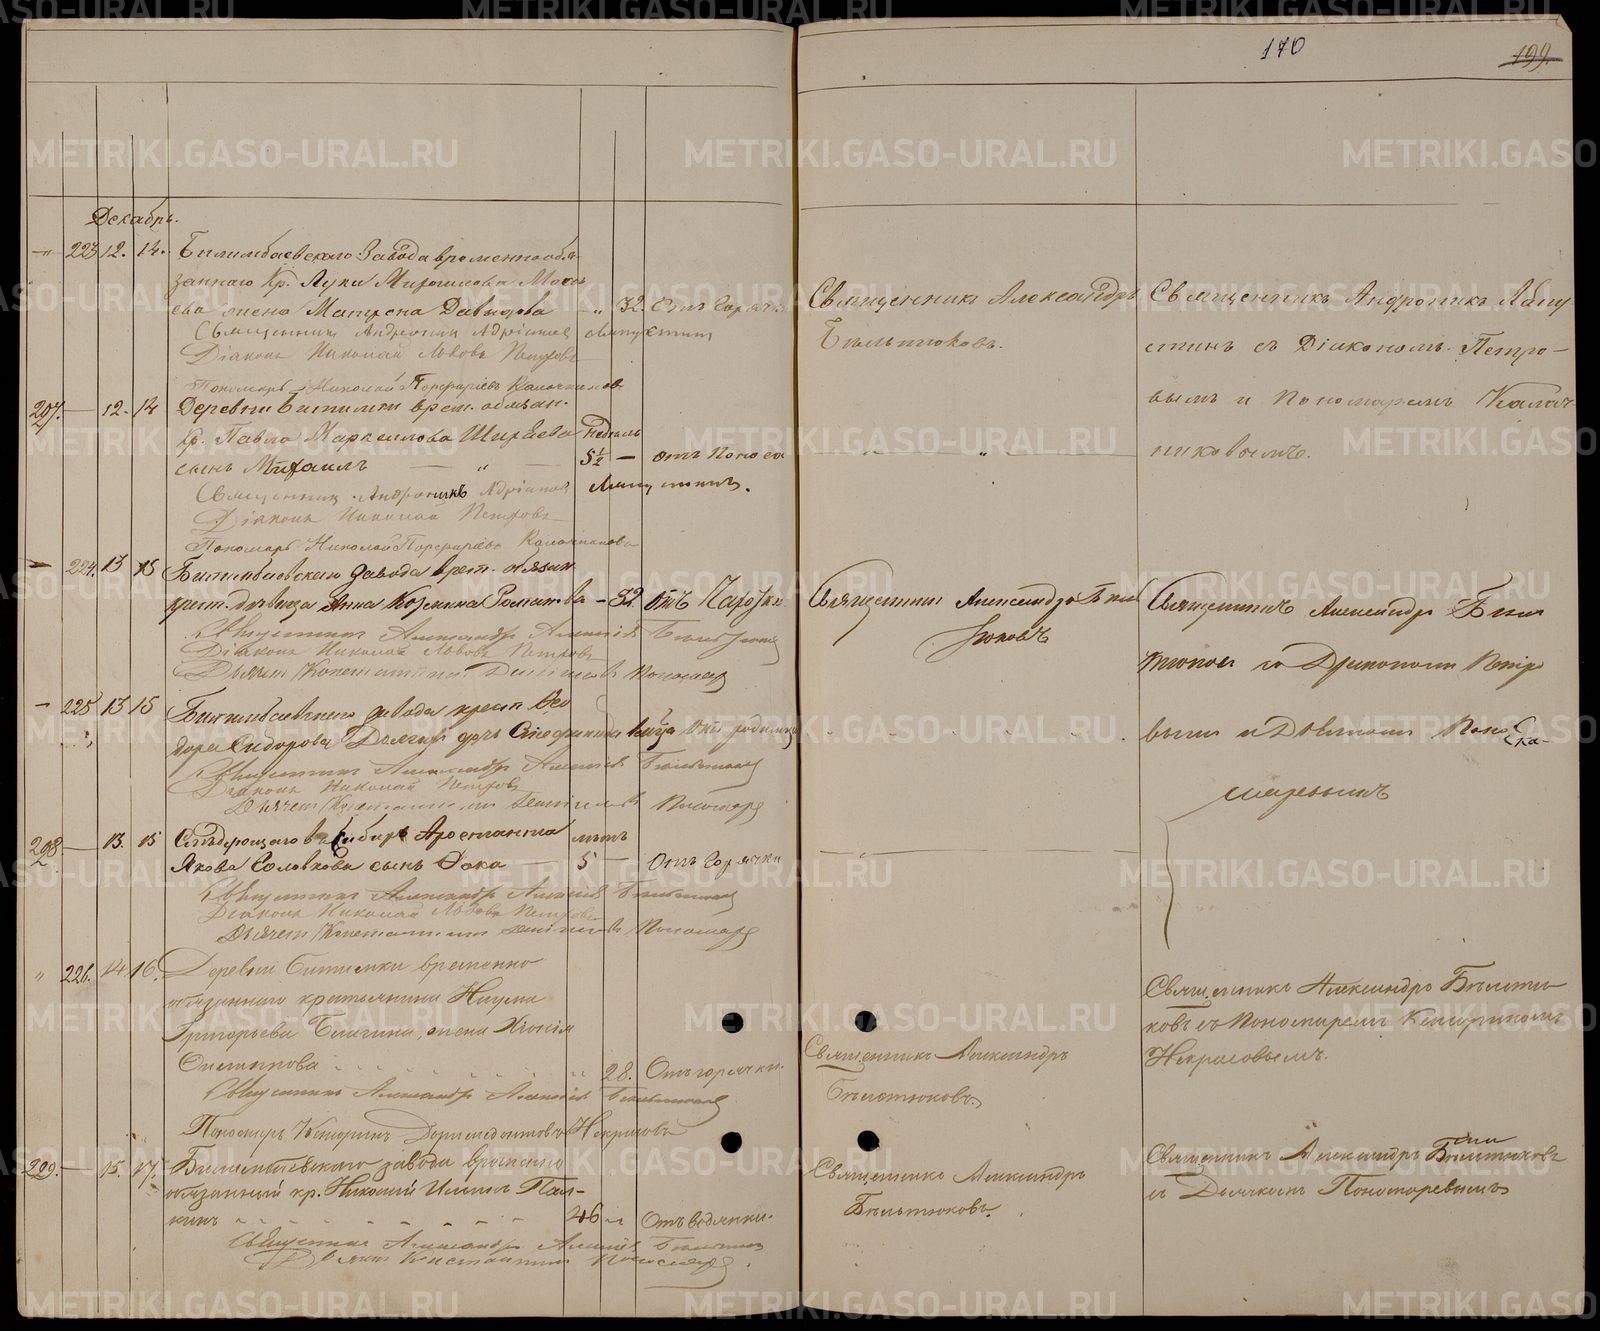 170
199.
Декабрь.
223 12. 14. Билимбаевскаго Завода временнообя-
заннаго Кр. Луки Мироновова Мосе-
ева жена Матрена Давыдова " 32. Отъ Горячк.
Священникъ Андроникъ Адріановъ Лапустинъ
Діаконъ Николай Львовъ Петровъ
Пономарь Николай Порфирьевъ Калачниковъ
Священникъ Александръ
Бѣльтюковъ.
Священникъ Андроникъ Лапу-
стинъ съ Діакономъ Петро-
вымъ и Пономаремъ Калач-
никовымъ.
207. 12. 14 Деревни Битимки врем. обязан.
Кр. Павла Маркеллова Ширяева недѣль
сынъ Михаилъ " 5½ — отъ Поноса
Священникъ Андроникъ Адріановъ Лапустинъ.
Діаконъ Николай Петровъ
Пономарь Николай Порфирьевъ Калачниковъ
224. 13 15 Билимбаевскаго завода врем. обязан.
крест. дѣвица Анна Козмина Романова — 32 Отъ Чахотки
Священникъ Александръ Алексіевъ Бѣльтюковъ
Діаконъ Николай Львовъ Петровъ
Дьячекъ Константинъ Пономарев
Священникъ Александръ Бѣль
тюковъ
Священникъ Александръ Бѣль
тюковъ съ Діакономъ Петро
вымъ и Дьячкомъ Поно-
маревымъ
225 13 15 Билимбаевскаго завода крест. Ѳео
дора Сидорова дочь Стефанида Отъ родимца
Священникъ Александръ Алексіевъ Бѣльтюковъ
Діаконъ Николай Петровъ
Дьячекъ Константинъ Пономарев
208 13. 15 Слѣдующаго въ Сибирь Арестанта лѣтъ
Якова Головкова сынъ Ѳока 5 — Отъ Горячки
Священникъ Александръ Алексіевъ Бѣльтюковъ
Діаконъ Николай Львовъ Петровъ
Дьячекъ Константинъ Пономарев
" 226. 14 16. Деревни Битимки временно
обязаннаго крестьянина Наума
Григорьева жена Хіонія
" 28. Отъ горячки.
Священникъ Александръ Алексіевъ Бѣльтюковъ
Пономарь Некрасовъ
Священникъ Александръ
Бѣльтюковъ.
Священникъ Александръ Бѣльтю-
ковъ съ Пономаремъ
Некрасовымъ.
209. 15. 17. Билимбаевскаго завода временно
обязанный кр. Николай Пал-
кинъ 46 " Отъ водянки.
Священникъ Александръ Алексіевъ Бѣльтюковъ
Дьячекъ Константинъ Пономарев
Священникъ Александръ
Бѣльтюковъ.
Священникъ Александръ Бѣльтюковъ
съ Дьячкомъ Пономаревымъ
METRIKI.GASO-URAL.RU